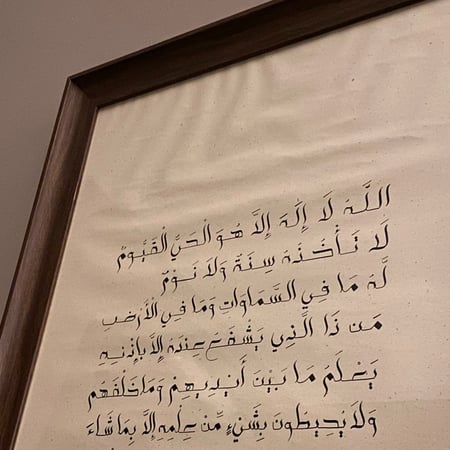 اللَّهُ لَا إِلَٰهَ إِلَّا هُوَ الْحَيُّ الْقَيُّومُ
لَا تَأْخُذُهُ سِنَةٌ وَلَا نَوْمٌ
لَّهُ مَا فِي السَّمَاوَاتِ وَمَا فِي الْأَرْضِ
مَن ذَا الَّذِي يَشْفَعُ عِندَهُ إِلَّا بِإِذْنِهِ
يَعْلَمُ مَا بَيْنَ أَيْدِيهِمْ وَمَا خَلْفَهُم
وَلَا يُحِيطُونَ بِشَيْءٍ مِّنْ عِلْمِهِ إِلَّا بِمَا شَاءَ